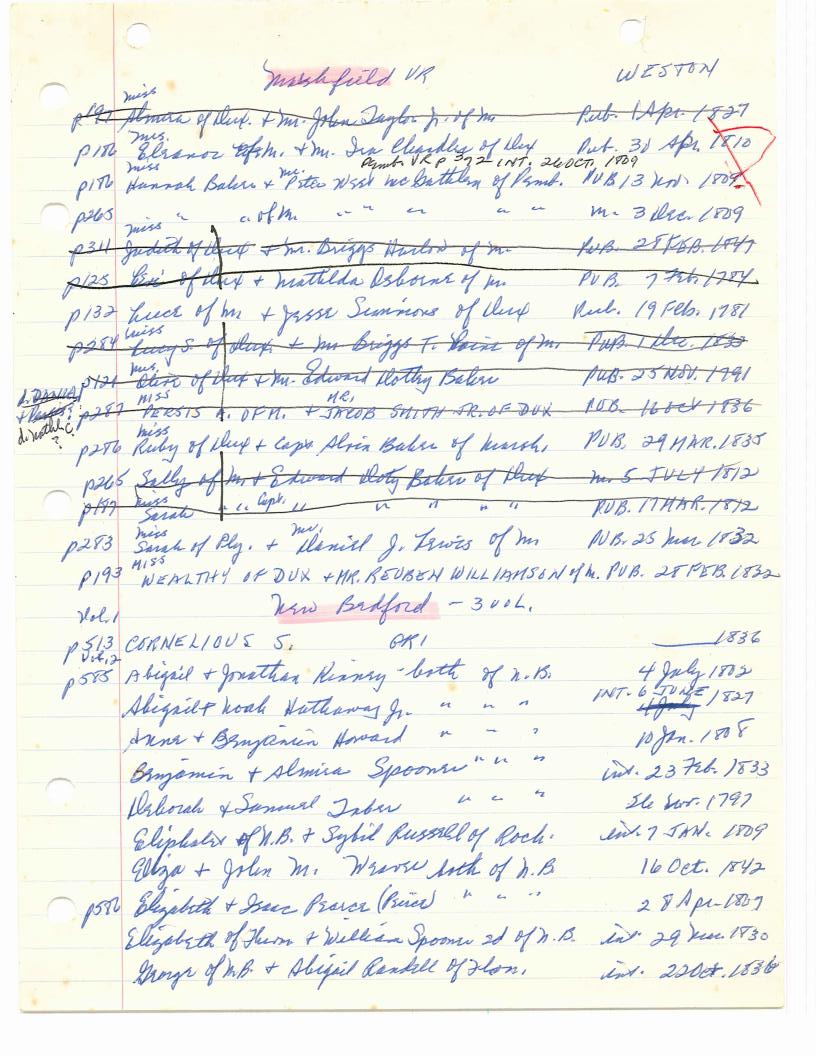 Marshfield VR WESTON
miss
p191 Almira of Dux. + Mr. John Taylor Jr. of M. Pub. 1 Apr. 1827
mrs.
p186 Eleanor of M. + Mr. Ira Chandler of Dux Pub. 30 Apr. 1810
Pemb. VR p 372 INT. 26 OCT. 1809
miss mr.
p186 Hannah Baker + Peter West McCathlen of Pemb. PUB 13 Nov. 1809
p265 " " of M. " " " " " m. 3 Dec. 1809
miss
p311 Judith of Dux + Mr. Briggs Harlow of M. PUB. 28 FEB. 1847
p125 of Dux + Mathilda Osborne of M. PUB. 7 Feb. 1784
p132 Luce of M + Jesse Simmons of Dux Pub. 19 Feb. 1781
miss
p284 Lucy S. of Dux. + Mr Briggs T. of M. PUB. 1 Dec. 1833
mrs.
p121 Olive of Dux + Mr. Edward Dothy Baker PUB. 25 NOV. 1791
d. DANIA
miss MR.
p287 PERSIS A. OF M. + JACOB SMITH JR. OF DUX PUB. 16 OCT 1836
?
miss
p286 Ruby of Dux + Capt Alvin Baker of Marsh. PUB. 29 MAR. 1835
p265 Sally of M. + Edward Doty Baker of Dux m. 5 JULY 1812
miss
p187 Sarah " " Capt. " " " " " PUB. 17 MAR. 1812
miss mr.
p283 Sarah of Ply. + Daniel J. Lewis of M PUB. 25 Mar 1832
MISS
p193 WEALTHY OF DUX + MR. REUBEN WILLIAMSON of M. PUB. 28 FEB. 1832
Vol. 1 New Bedford - 3 VOL.
p513 CORNELIOUS S. GR1 1836
Vol. 2
p585 Abigail + Jonathan Kinney - both of N.B. 4 July 1802
Abigail + Noah Hathaway Jr. " " " INT. 6 JUNE 1827
Anne + Benjamin Howard " " " 10 Jan. 1808
Benjamin + Almira Spooner " " " int. 23 Feb. 1833
Deborah + Samuel Taber " " " 26 Nov. 1797
Eliphalet of N.B. + Sybil Russell of Roch. int. 7 JAN. 1809
Eliza + John M. Weaver both of N.B 16 Oct. 1842
p586 Elizabeth + Isaac Pearce (Peirce) " " " 28 Apr. 1807
Elizabeth of + William Spooner 2d of N.B. int. 29 Mar. 1830
George of N.B. + Abigail Randell of int. 22 Oct. 1836